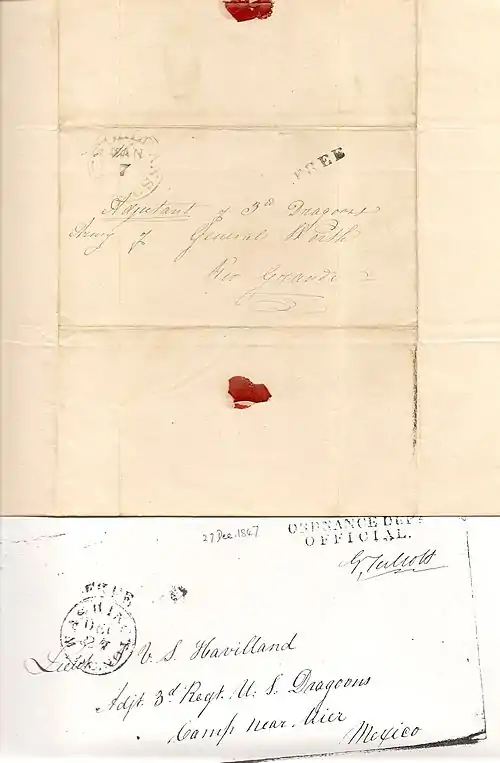 JAN
7
FREE
Adjutant of 3d Dragoons
Army of General Worth
Rio Grande
27 Dec. 1847
ORDNANCE DEPT
OFFICIAL.
G. Talcott
FREE
WASHINGTON
DEC
27
Lieut. V. S. Havilland
Adjt. 3d Regt. U. S. Dragoons
Camp near Mier
Mexico